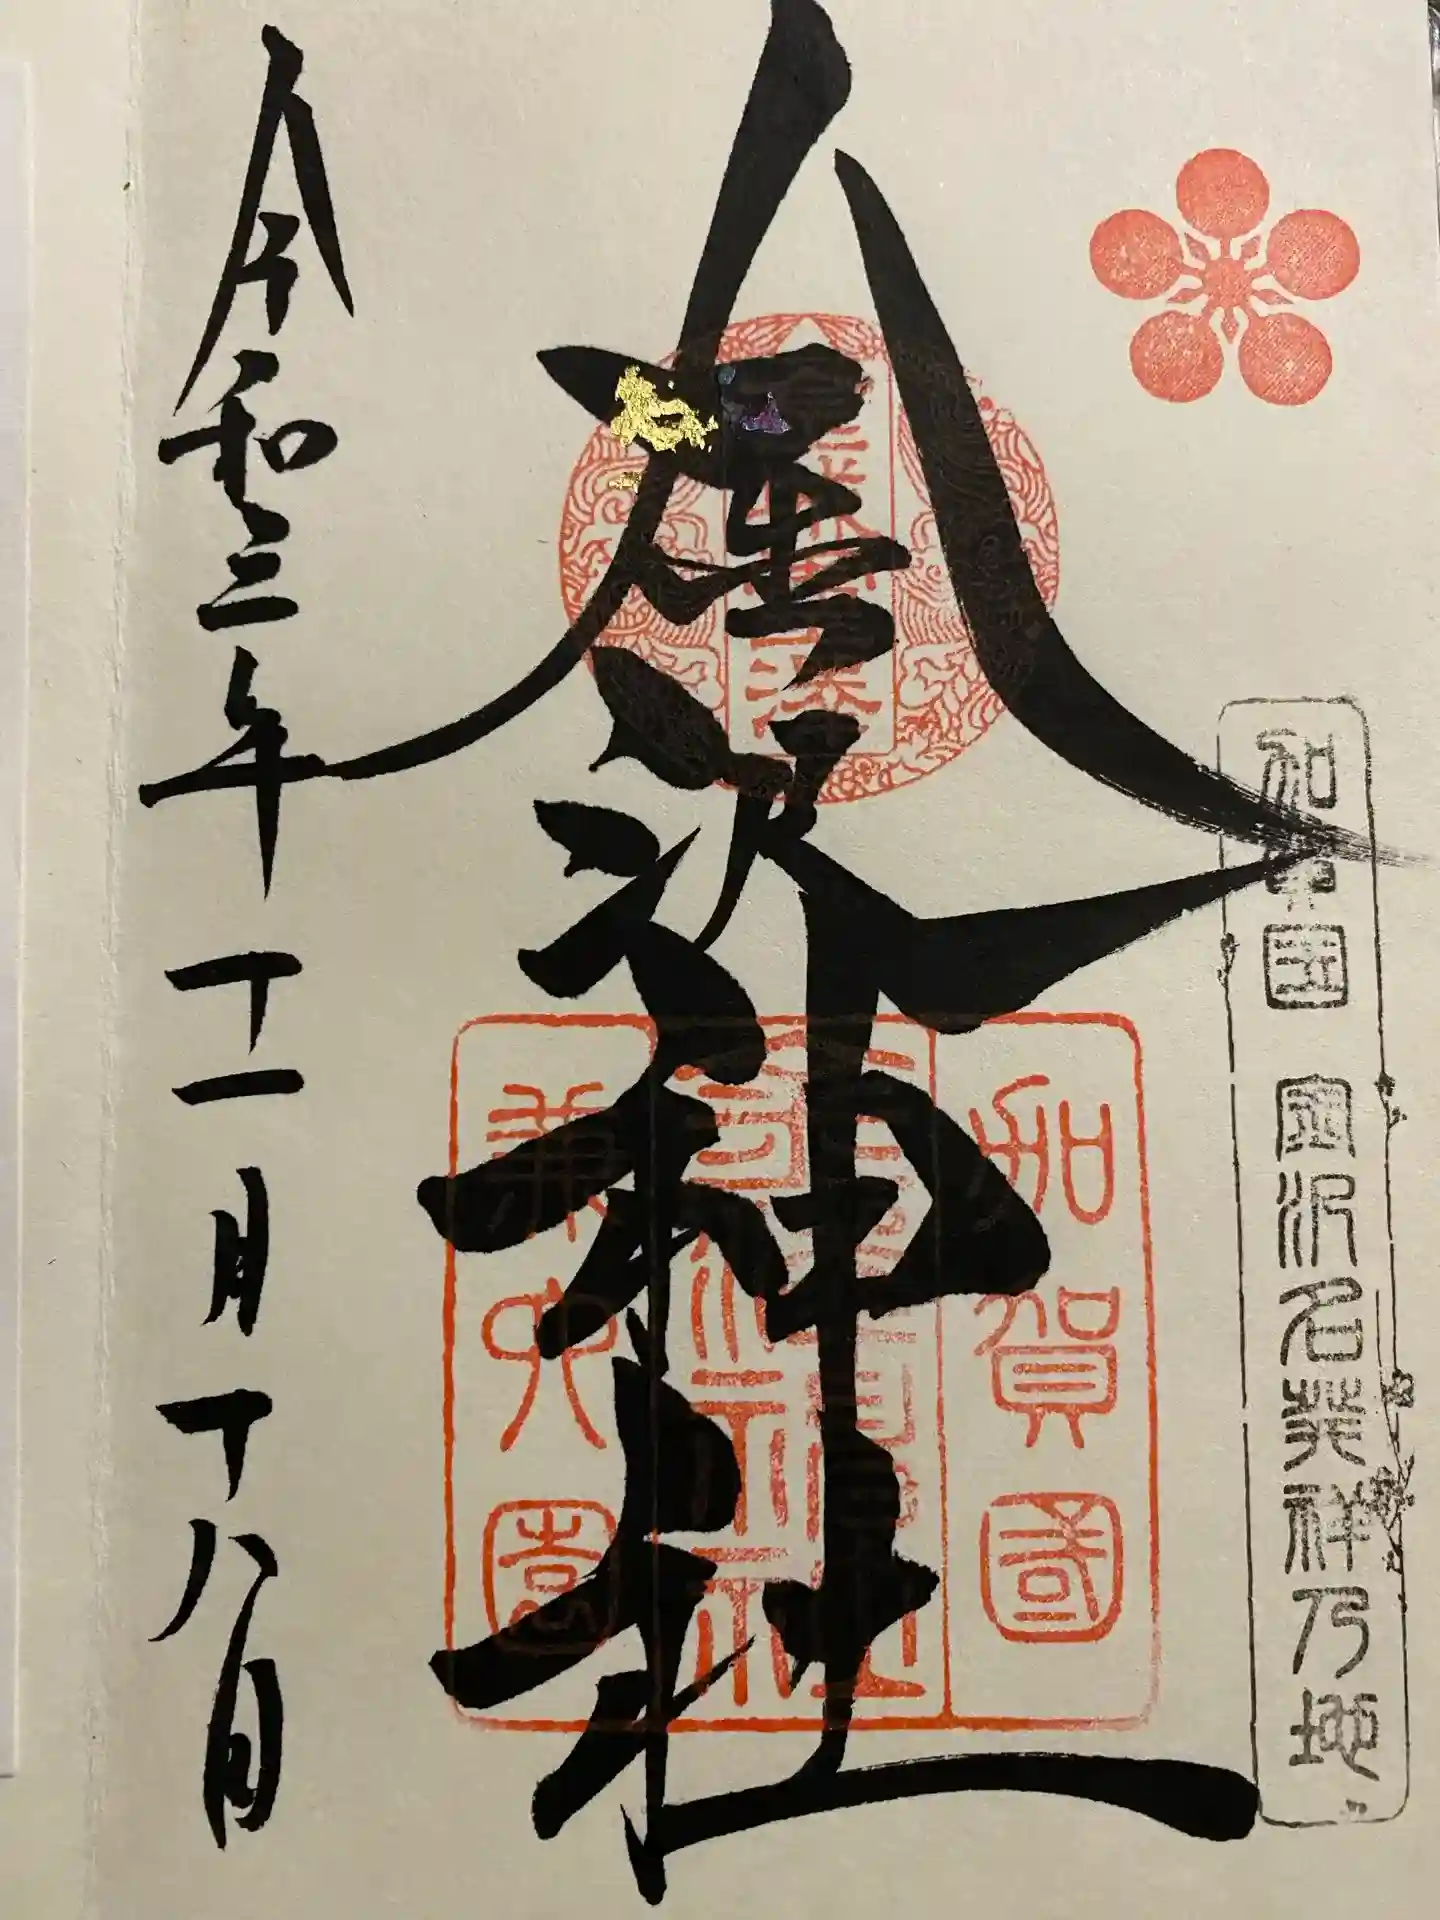 加賀国 金沢名発祥乃地
金澤神社
加賀國
金澤神社
兼六園
令和三年十一月十八日